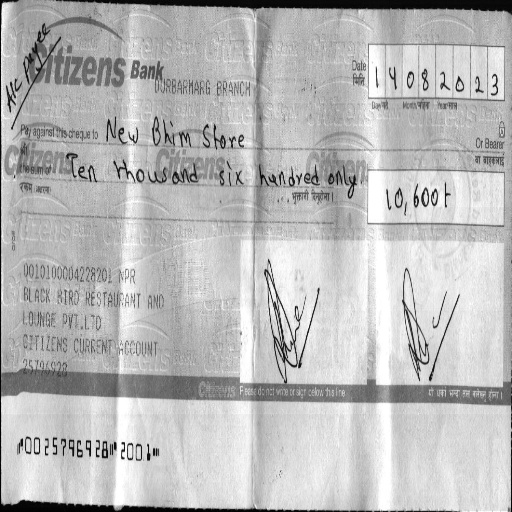 A/C payee
Citizens Bank
DURBARMARG BRANCH
Date
मिति
14082023
Day/गते Month/महिना Year/साल
Pay against this cheque to New Bhim Store
Or Bearer
वा वाहकलाई
the sum of Ten thousand six hundred only.
रकम अक्षरमा
भुक्तानी दिनुहोला ।
10,600/-
00101000042282O1 NPR
BLACK BIRD RESTAURANT AND
LOUNGE PVT.LTD
CITIZENS CURRENT ACCOUNT
25796928
Citizens Please do not write or sign below this line
⑈0025796928⑈2001⑈